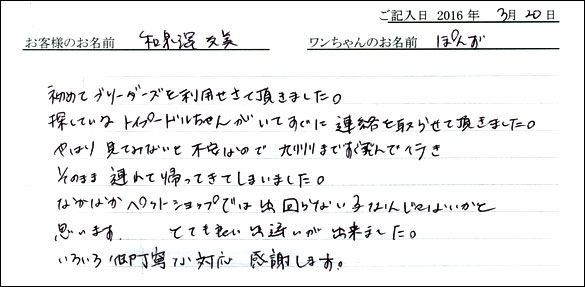 ご記入日 2016 年 3月 20 日
お客様のお名前 和泉澤 友美 ワンちゃんのお名前 ぽんず
初めてブリーダーズを利用させて頂きました。
探しているトイプードルちゃんがいてすぐに連絡を取らせて頂きました。
やはり見てみないと不安なので九州まですぐ飛んで行き
そのまま連れて帰ってきてしまいました。
なかなかペットショップでは出回らない子なんじゃないかと
思います。 とても良い出逢いが出来ました。
いろいろ御丁寧な対応 感謝します。